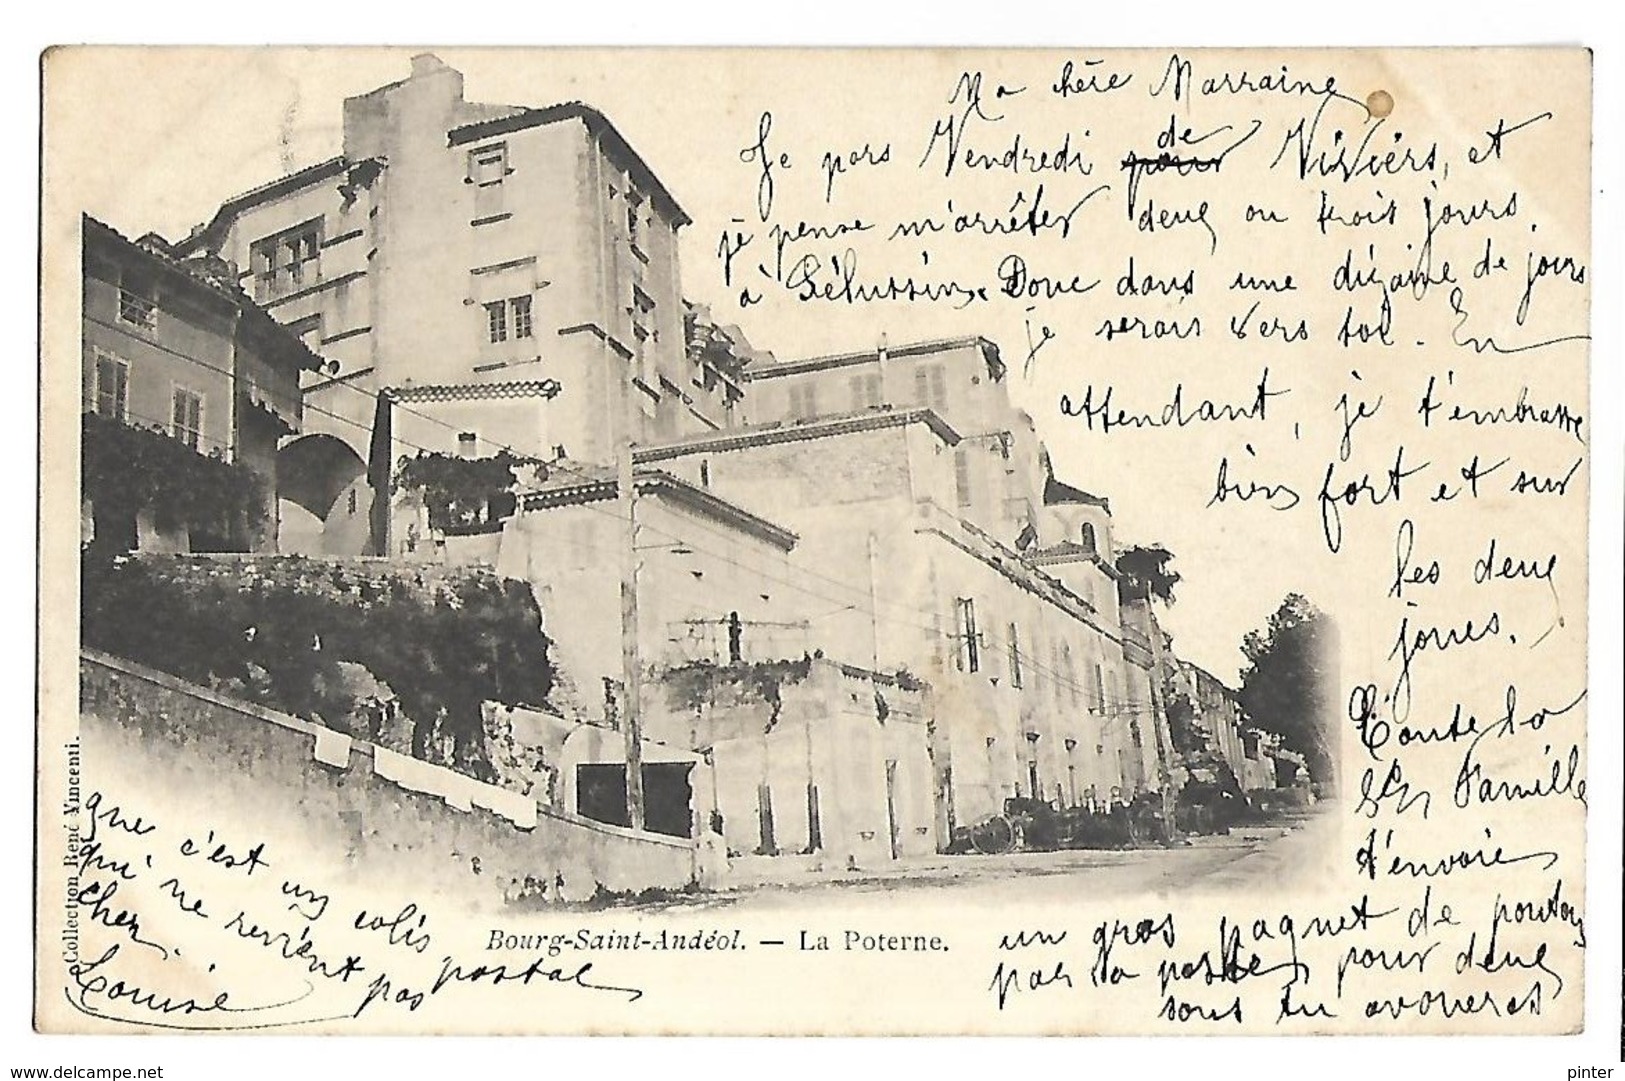 Ma chère Marraine
Je pars Vendredi pour de Viviers, et
je pense m'arrêter deux ou trois jours
à Pélussin. Donc dans une dizaine de jours
je serais vers toi. En
attendant, je t'embrasse
bien fort et sur
les deux
joues.
Toute la
Famille
t'envoie
un gros paquet de poutous
par la poste, pour deux
sous tu avoueras
que c'est un colis postal
qui ne revient pas
cher.
Louise
Bourg-Saint-Andéol. — La Poterne.
Collection René Vincenti.
delcampe.net
pinter